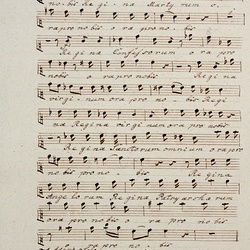 no-bis Regi - na Martyrum o -
rapronobis o rapro no - bis.
Regina Confessorum o ra pro
nobis o ra pro nobis Regina
virginum ora pro no - bis Regi
na Regina virginum ora pro nobis
Regina Sanctorum omnium ora pro
no bis pro no - bis. Regina
Angelorum Regina Patryarcharum
ora pro nobis o ra pro no - bis
ora pro no - bis.